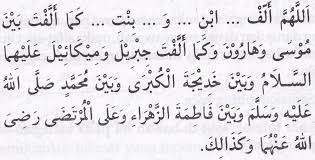 اَللّٰهُمَّ أَلِّفْ ... اِبْنِ ... وَ ... بِنْتِ ... كَمَا أَلَّفْتَ بَيْنَ
مُوْسَى وَهَارُوْنَ وَكَمَا أَلَّفْتَ جِبْرِيْلَ وَمِيْكَائِيْلَ عَلَيْهِمَا
السَّلَامُ وَبَيْنَ خَدِيْجَةَ الْكُبْرَى وَبَيْنَ مُحَمَّدٍ صَلَّى اللهُ
عَلَيْهِ وَسَلَّمَ وَبَيْنَ فَاطِمَةَ الزَّهْرَاءِ وَعَلَى الْمُرْتَضَى رَضِىَ
اللهُ عَنْهُمَا وَكَذَالِكَ.